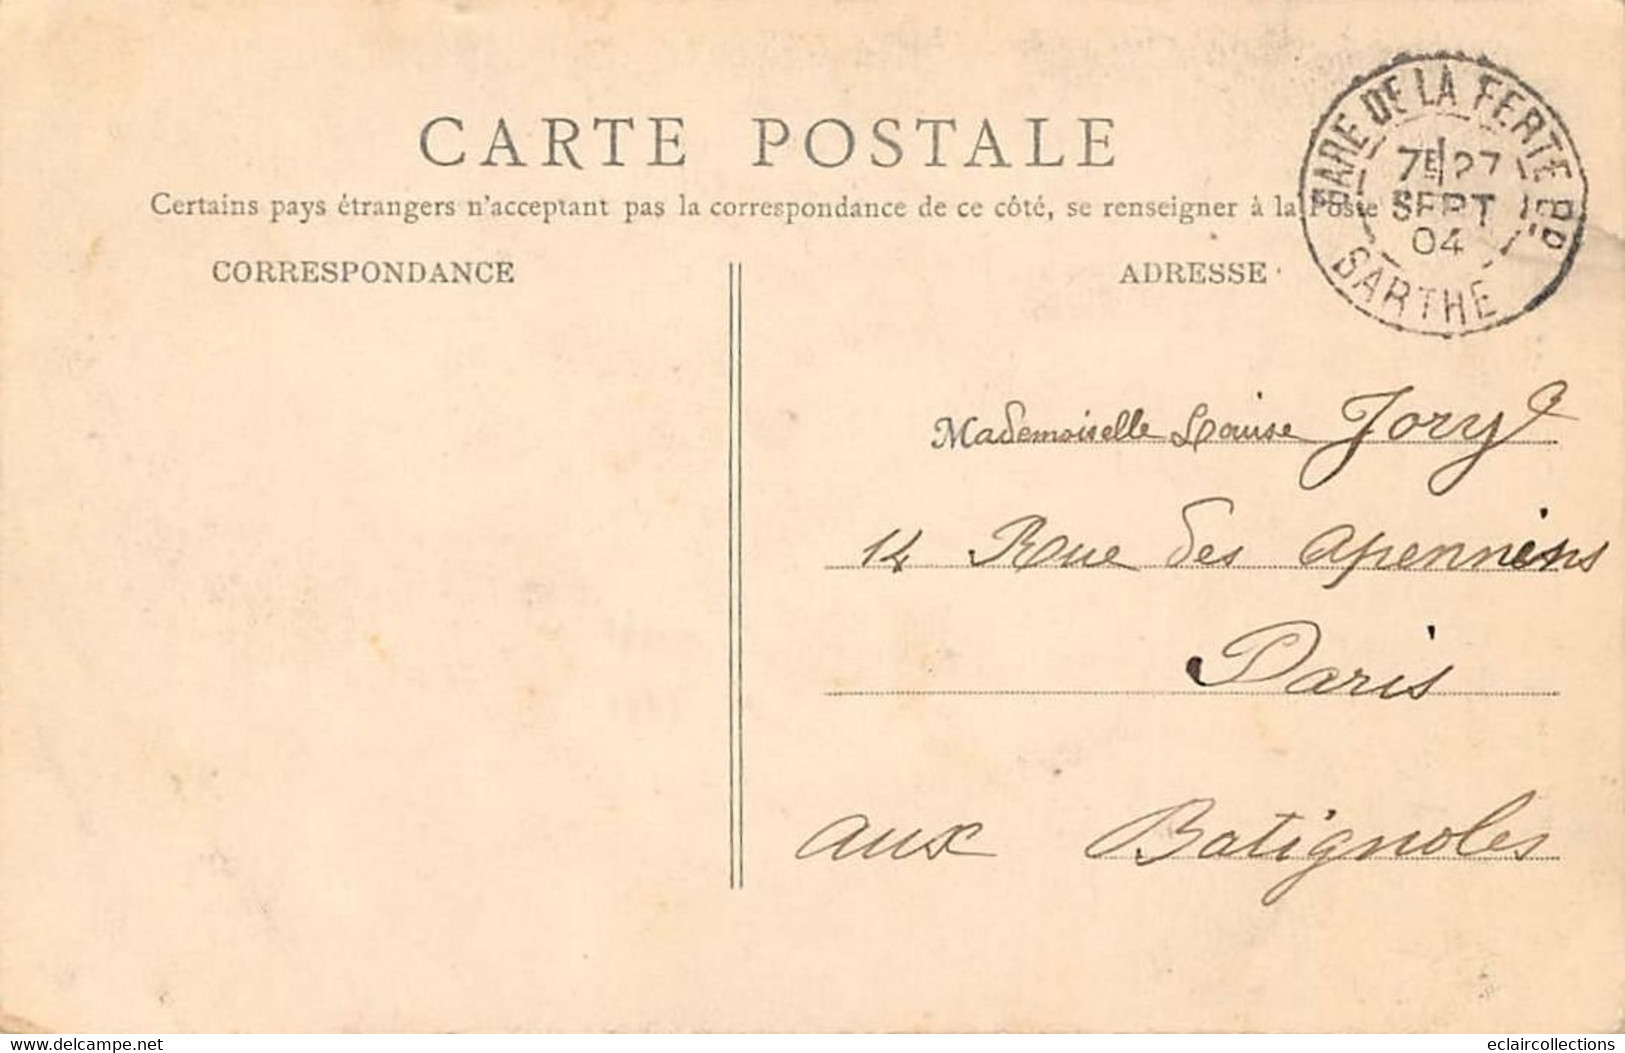 CARTE POSTALE
Certains pays étrangers n'acceptant pas la correspondance de ce côté, se renseigner à la Poste
CORRESPONDANCE
ADRESSE
GARE DE LA FERTE
7E 27
SEPT
04
SARTHE
Mademoiselle Louise Jory
14 Rue des apennins
Paris
aux Batignoles
www.delcampe.net
eclaircollections